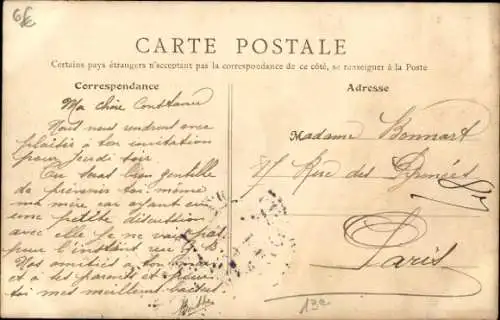 CARTE POSTALE
Certains pays étrangers n'acceptant pas la correspondance de ce côté, se renseigner à la Poste
Correspondance
Ma chère Constance
Nous nous rendrons avec
plaisir à ton invitation
pour jeudi soir.
Tu seras bien gentille
de prévenir toi même
ma mère car ayant eu
une petite discussion
avec elle je ne vais pas
pour l'instant rue G. B.
Nos amitiés à ton
et à tes parents et pour
toi mes meilleurs baisers
Adresse
Madame Bonnart
27 Rue des Pyrénées
Paris